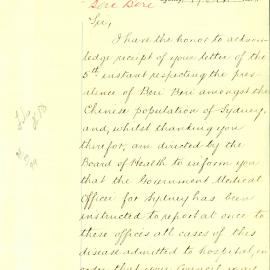 Beri Beri
Sir,
I have the honor to acknow-
ledge receipt of your letter of the
5th instant respecting the prev-
alence of Beri Beri amongst the
Chinese population of Sydney,
and, whilst thanking you
therefor, am directed by the
Board of Health to inform you
that the Government Medical
Officer for Sydney has been
instructed to report at once to
these offices all cases of this
disease admitted to hospital, in
order that your Council may